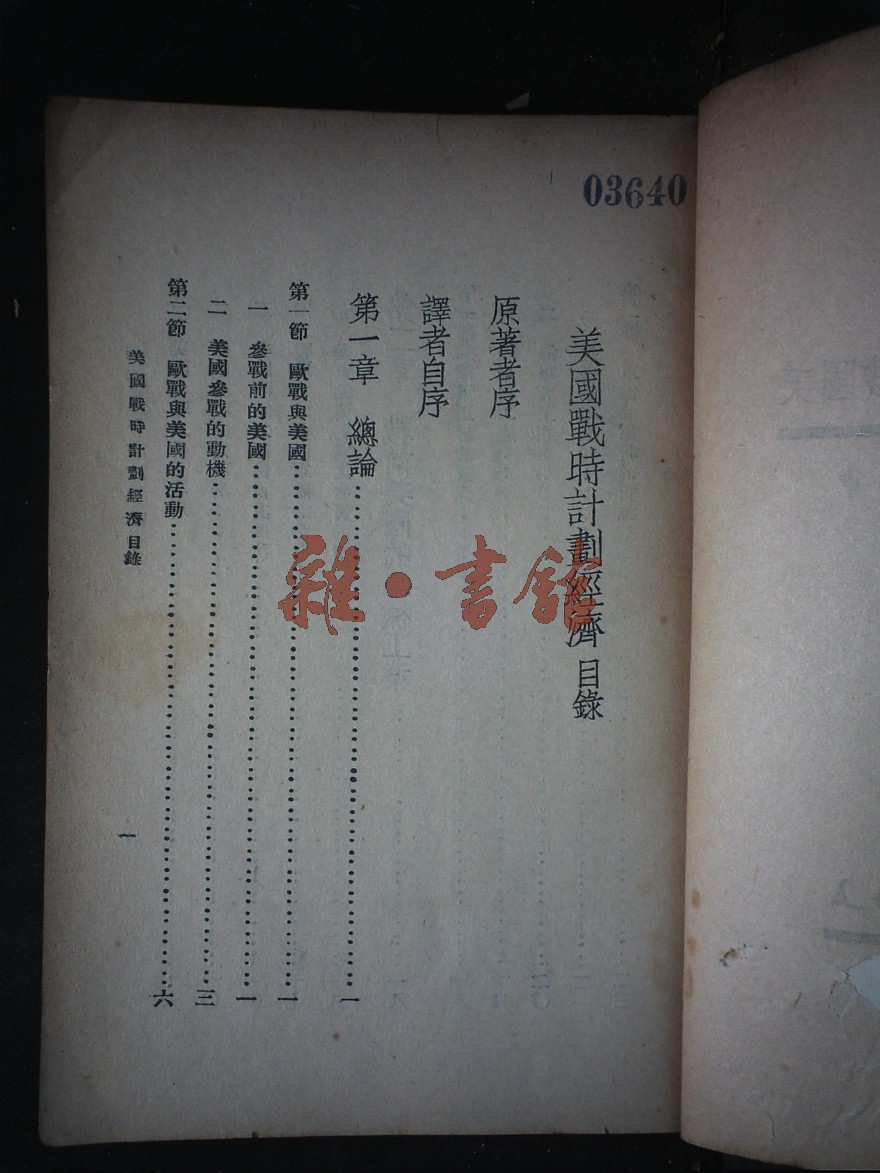 03640
美國戰時計劃經濟 目錄
原著者序
譯者自序
第一章 總論……一
第一節 歐戰與美國……一
一 參戰前的美國……一
二 美國參戰的動機……三
第二節 歐戰與美國的活動……六
美國戰時計劃經濟 目錄
一
雜·書館